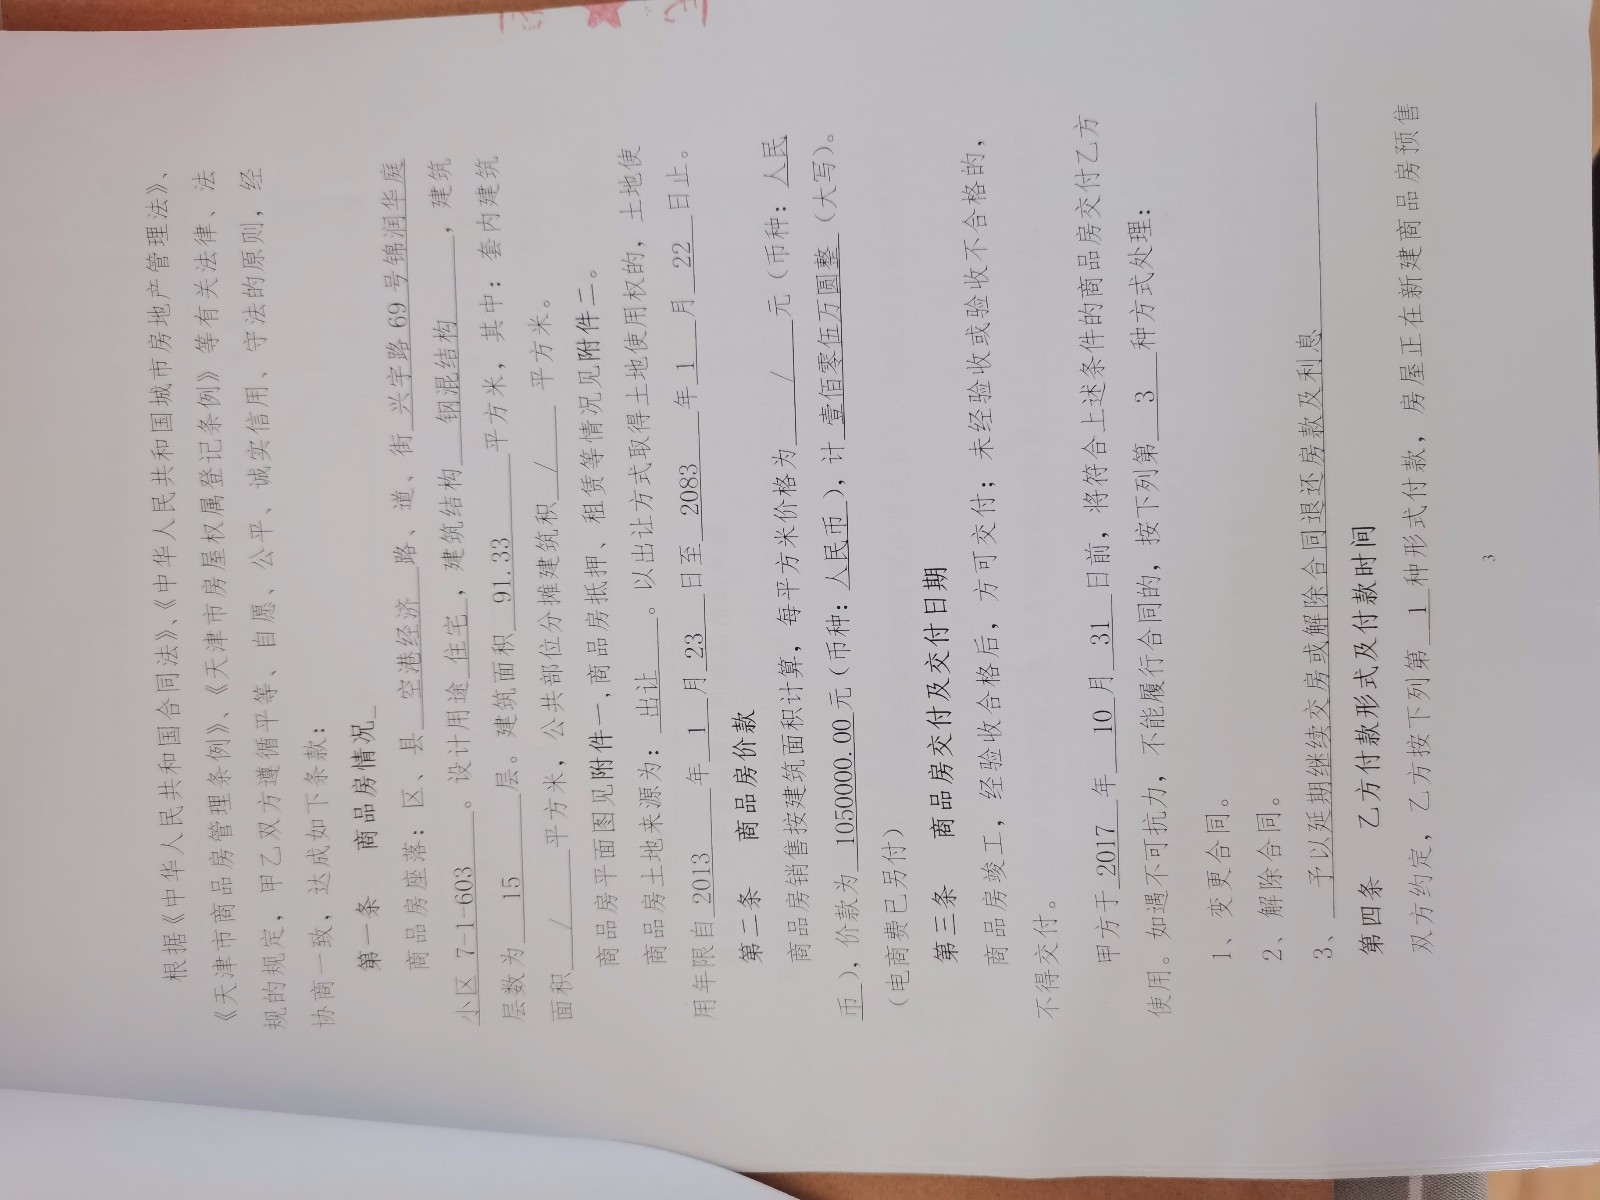 根据《中华人民共和国合同法》、《中华人民共和国城市房地产管理法》、
《天津市商品房管理条例》、《天津市房屋权属登记条例》等有关法律、法
规的规定，甲乙双方遵循平等、自愿、公平、诚实信用、守法的原则，经
协商一致，达成如下条款：
第一条 商品房情况_
商品房座落：区、县 空港经济 路、道、街 兴宇路 69 号锦润华庭
小区 7-1-603 。设计用途 住宅 ，建筑结构 钢混结构 ，建筑
层数为 15 层。建筑面积 91.33 平方米，其中：套内建筑
面积 / 平方米，公共部位分摊建筑面积 / 平方米。
商品房平面图见附件一,商品房抵押、租赁等情况见附件二。
商品房土地来源为： 出让 。以出让方式取得土地使用权的，土地使
用年限自 2013 年 1 月 23 日至 2083 年 1 月 22 日止。
第二条 商品房价款
商品房销售按建筑面积计算，每平方米价格为 / 元（币种：人民
币），价款为 1050000.00 元（币种：人民币），计 壹佰零伍万圆整 （大写）。
（电商费已另付）
第三条 商品房交付及交付日期
商品房竣工，经验收合格后，方可交付；未经验收或验收不合格的，
不得交付。
甲方于 2017 年 10 月 31 日前，将符合上述条件的商品房交付乙方
使用。如遇不可抗力，不能履行合同的，按下列第 3 种方式处理：
1、变更合同。
2、解除合同。
3、 予以延期继续交房或解除合同退还房款及利息
第四条 乙方付款形式及付款时间
双方约定，乙方按下列第 1 种形式付款，房屋正在新建商品房预售
3